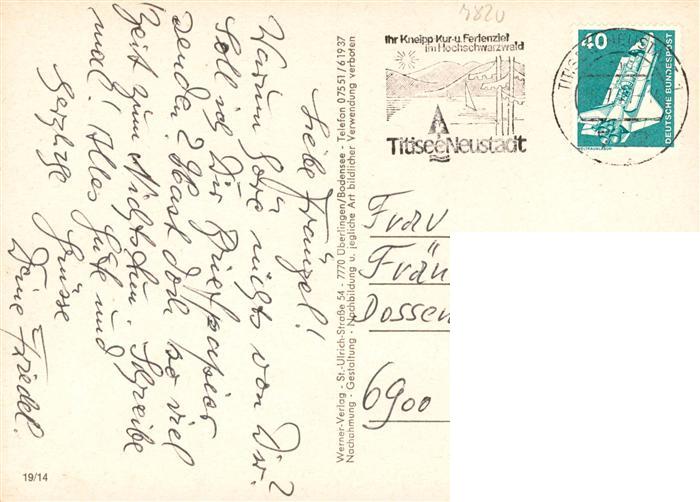 4820
Ihr Kneipp-Kur-u. Ferienziel
im Hochschwarzwald
Titisee Neustadt
TITISEE-NEUSTADT 1
40
DEUTSCHE BUNDESPOST
WELTRAUMLABOR
Liebe Fränzel!
Warum höre nichts von Dir?
Soll ich Dir Briefpapier
senden? Hast doch so viel
Zeit zum Nichtstun. Schreibe
mal! Alles Gute und
herzliche Grüsse
Deine Friedel.
Werner-Verlag - St.-Ulrich-Straße 54 - 7770 Überlingen/Bodensee - Telefon 07551/61937
Nachahmung - Gestaltung - Nachbildung u. jegliche Art bildlicher Verwendung verboten
Frau
Frän
Dossen
6900
19/14